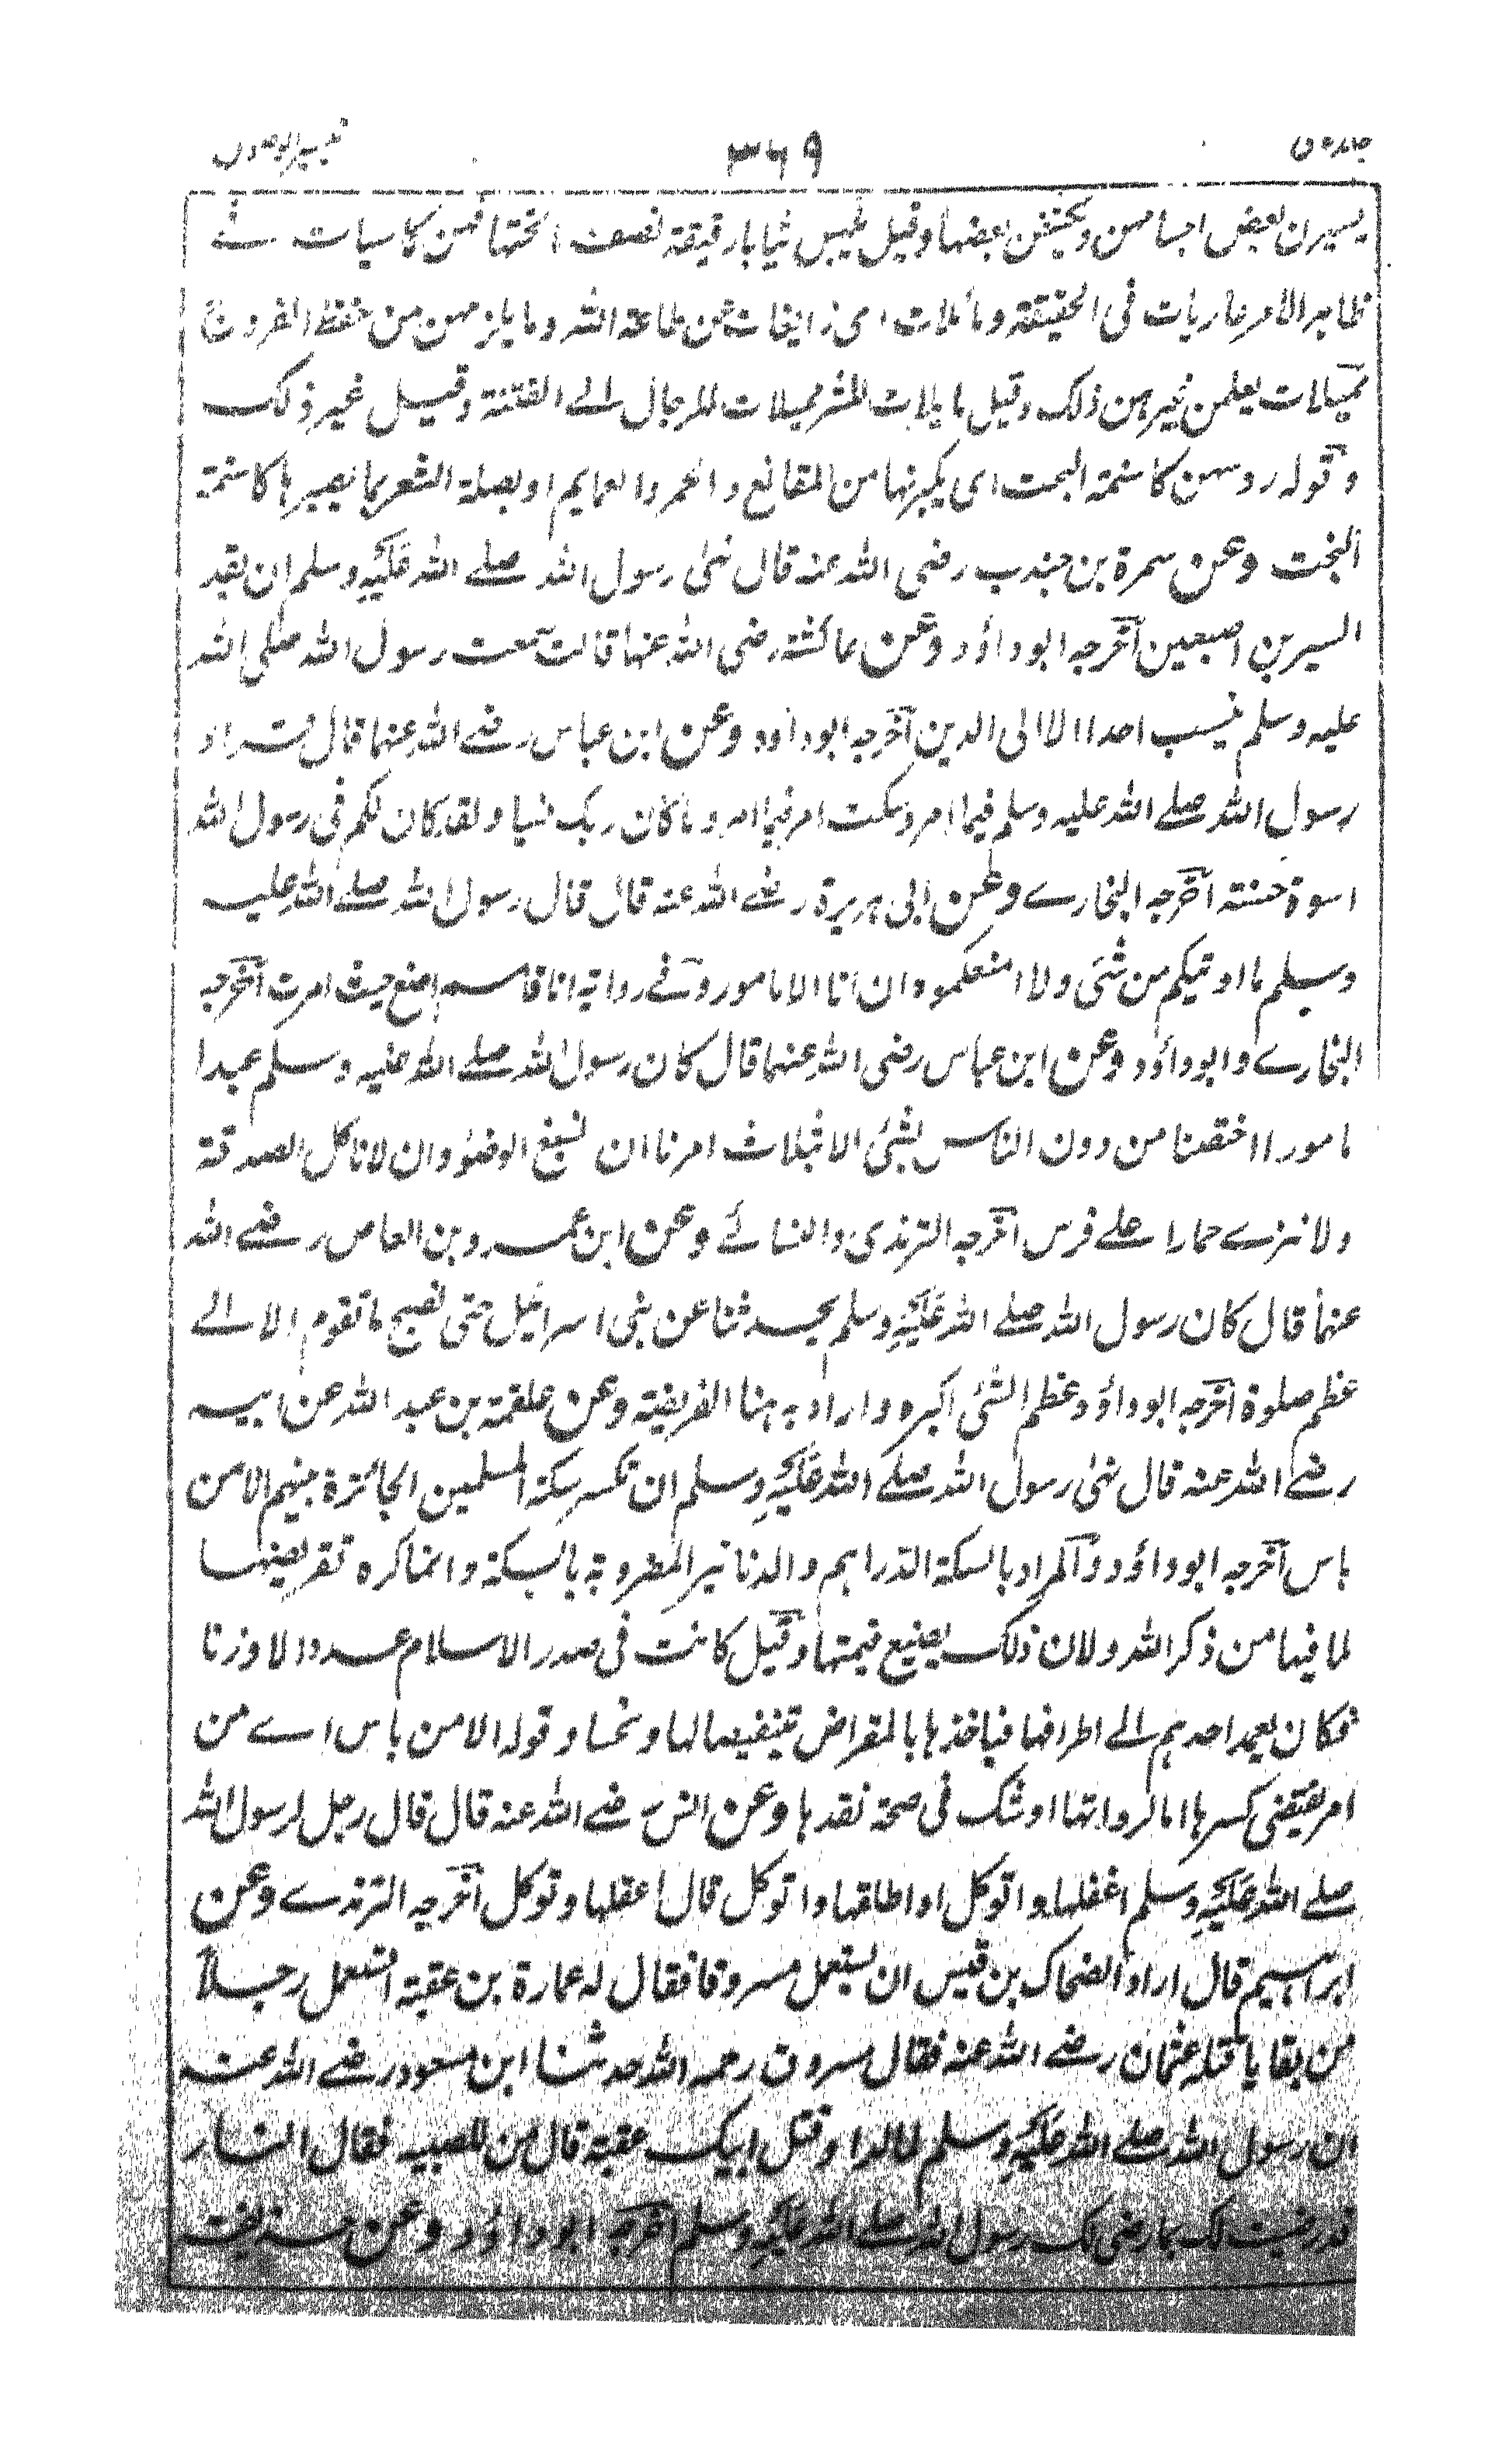 تيسير الوصول ٣٦٩ جلد دوم
يسيرن بعض اجسامهن ويخفين بعضها وقيل يلبس ثيابا رقيقة تصف ما تحتها فهن كاسيات في
ظاهر الامر عاريات فى الحقيقة ومائلات اى زايغات عن طاعة الله وما يلزمهن من حفظ الفروج
مميلات يعلمن غيرهن ذلك وقيل مايلات للشر مميلات للرجال الے الفتنة وقيل غير ذلك
وقوله روسهن كاسنمة البخت اى يكبرنها من المقانع والخمر والعمايم او بصلة الشعر بما يصيرها كاسنمة
البخت وعن سمرة بن جندب رضى الله عنه قال نهى رسول الله صلے الله عليه وسلم ان يقد
السير بين اصبعين اخرجه ابو داؤد وعن عائشة رضى الله عنها قالت سمعت رسول الله صلى الله
عليه وسلم ينسب احدا الا الى الدين اخرجه ابو داود وعن ابن عباس رضے الله عنهما قال
رسول الله صلے الله عليه وسلم فيما امر وسكت امر فيما امر وما كان ربك نسيا ولقد كان لكم فى رسول الله
اسوة حسنة اخرجه البخارے وعن ابى هريرة رضے الله عنه قال قال رسول الله صلے الله عليه
وسلم ما اوتيكم من شئ ولا امنعكموه ان انا الا مامور وفے رواية انا قاسم اضع حيث امرت اخرجه
البخارے وابو داؤد وعن ابن عباس رضى الله عنهما قال كان رسول الله صلے الله عليه وسلم عبدا
مامورا اختصنا من دون الناس بشئ الا بثلاث امرنا ان نسبغ الوضوٴ وان لا ناكل الصدقة
ولا ننزے حمارا علے فرس اخرجه الترمذى والنسائے وعن ابن عمرو بن العاص رضے الله
عنهما قال كان رسول الله صلے الله عليه وسلم يحدثنا عن بنى اسرائيل حتى نصبح ما تقوم الا الے
عظم صلوة اخرجه ابو داؤد وعظم الشئ اكبره واراد به هنا الفريضة وعن علقمة بن عبد الله عن ابيه
رضے الله عنه قال نهى رسول الله صلے الله عليه وسلم ان تكسر سكة المسلمين الجائزة بينهم الا من
باس اخرجه ابو داؤد والمراد بالسكة الدراهم والدنانير المضروبة بالسكة وانما كره تقريضها
لما فيها من ذكر الله ولان ذلك يضيع قيمتها وقيل كانت فى صدر الاسلام عددا لا وزنا
فكان يعمد احدهم الے اطرافها فياخذها بالمقراض تنفيصا لها وبخسا وقوله الا من باس اے من
امر يقتضى كسرها اما لرداتها او شك فى صحة نقدها وعن انس رضے الله عنه قال قال رجل لرسول الله
صلے الله عليه وسلم اعقلها واتوكل او اطلقها واتوكل قال اعقلها وتوكل اخرجه الترمذے وعن
ابراهيم قال اراد الضحاك بن قيس ان يستعمل مسروقا فقال له عمارة بن عقبة اتستعمل رجلاً
من بقايا قتلة عثمان رضے الله عنه فقال مسروق رحمه الله حدثنا ابن مسعود رضے الله عنه
ان رسول الله صلے الله عليه وسلم لما اراد قتل ابيك عقبة قال من للصبية فقال النار
قد رضيت لك بما رضى لك رسول الله صلے الله عليه وسلم اخرجه ابو داؤد وعن حذيفة